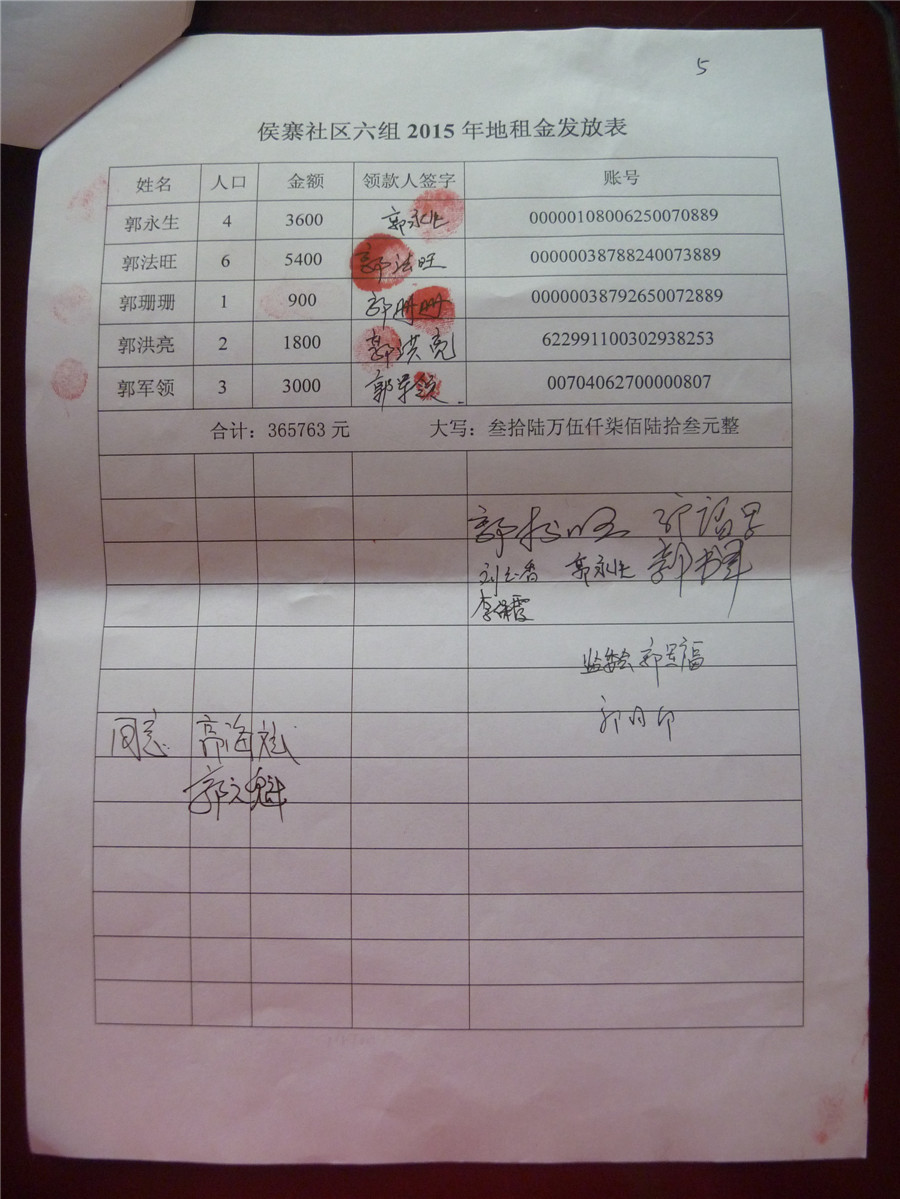 5
侯寨社区六组 2015 年地租金发放表
姓名 人口 金额 领款人签字 账号
郭永生 4 3600 郭永生 00000108006250070889
郭法旺 6 5400 郭法旺 00000038788240073889
郭珊珊 1 900 郭珊珊 00000038792650072889
郭洪亮 2 1800 郭洪亮 622991100302938253
郭军领 3 3000 郭军领 00704062700000807
合计：365763 元 大写：叁拾陆万伍仟柒佰陆拾叁元整
郭 郭
郭永生 郭
李
监委会 郭
郭
同意 高海斌
郭文魁